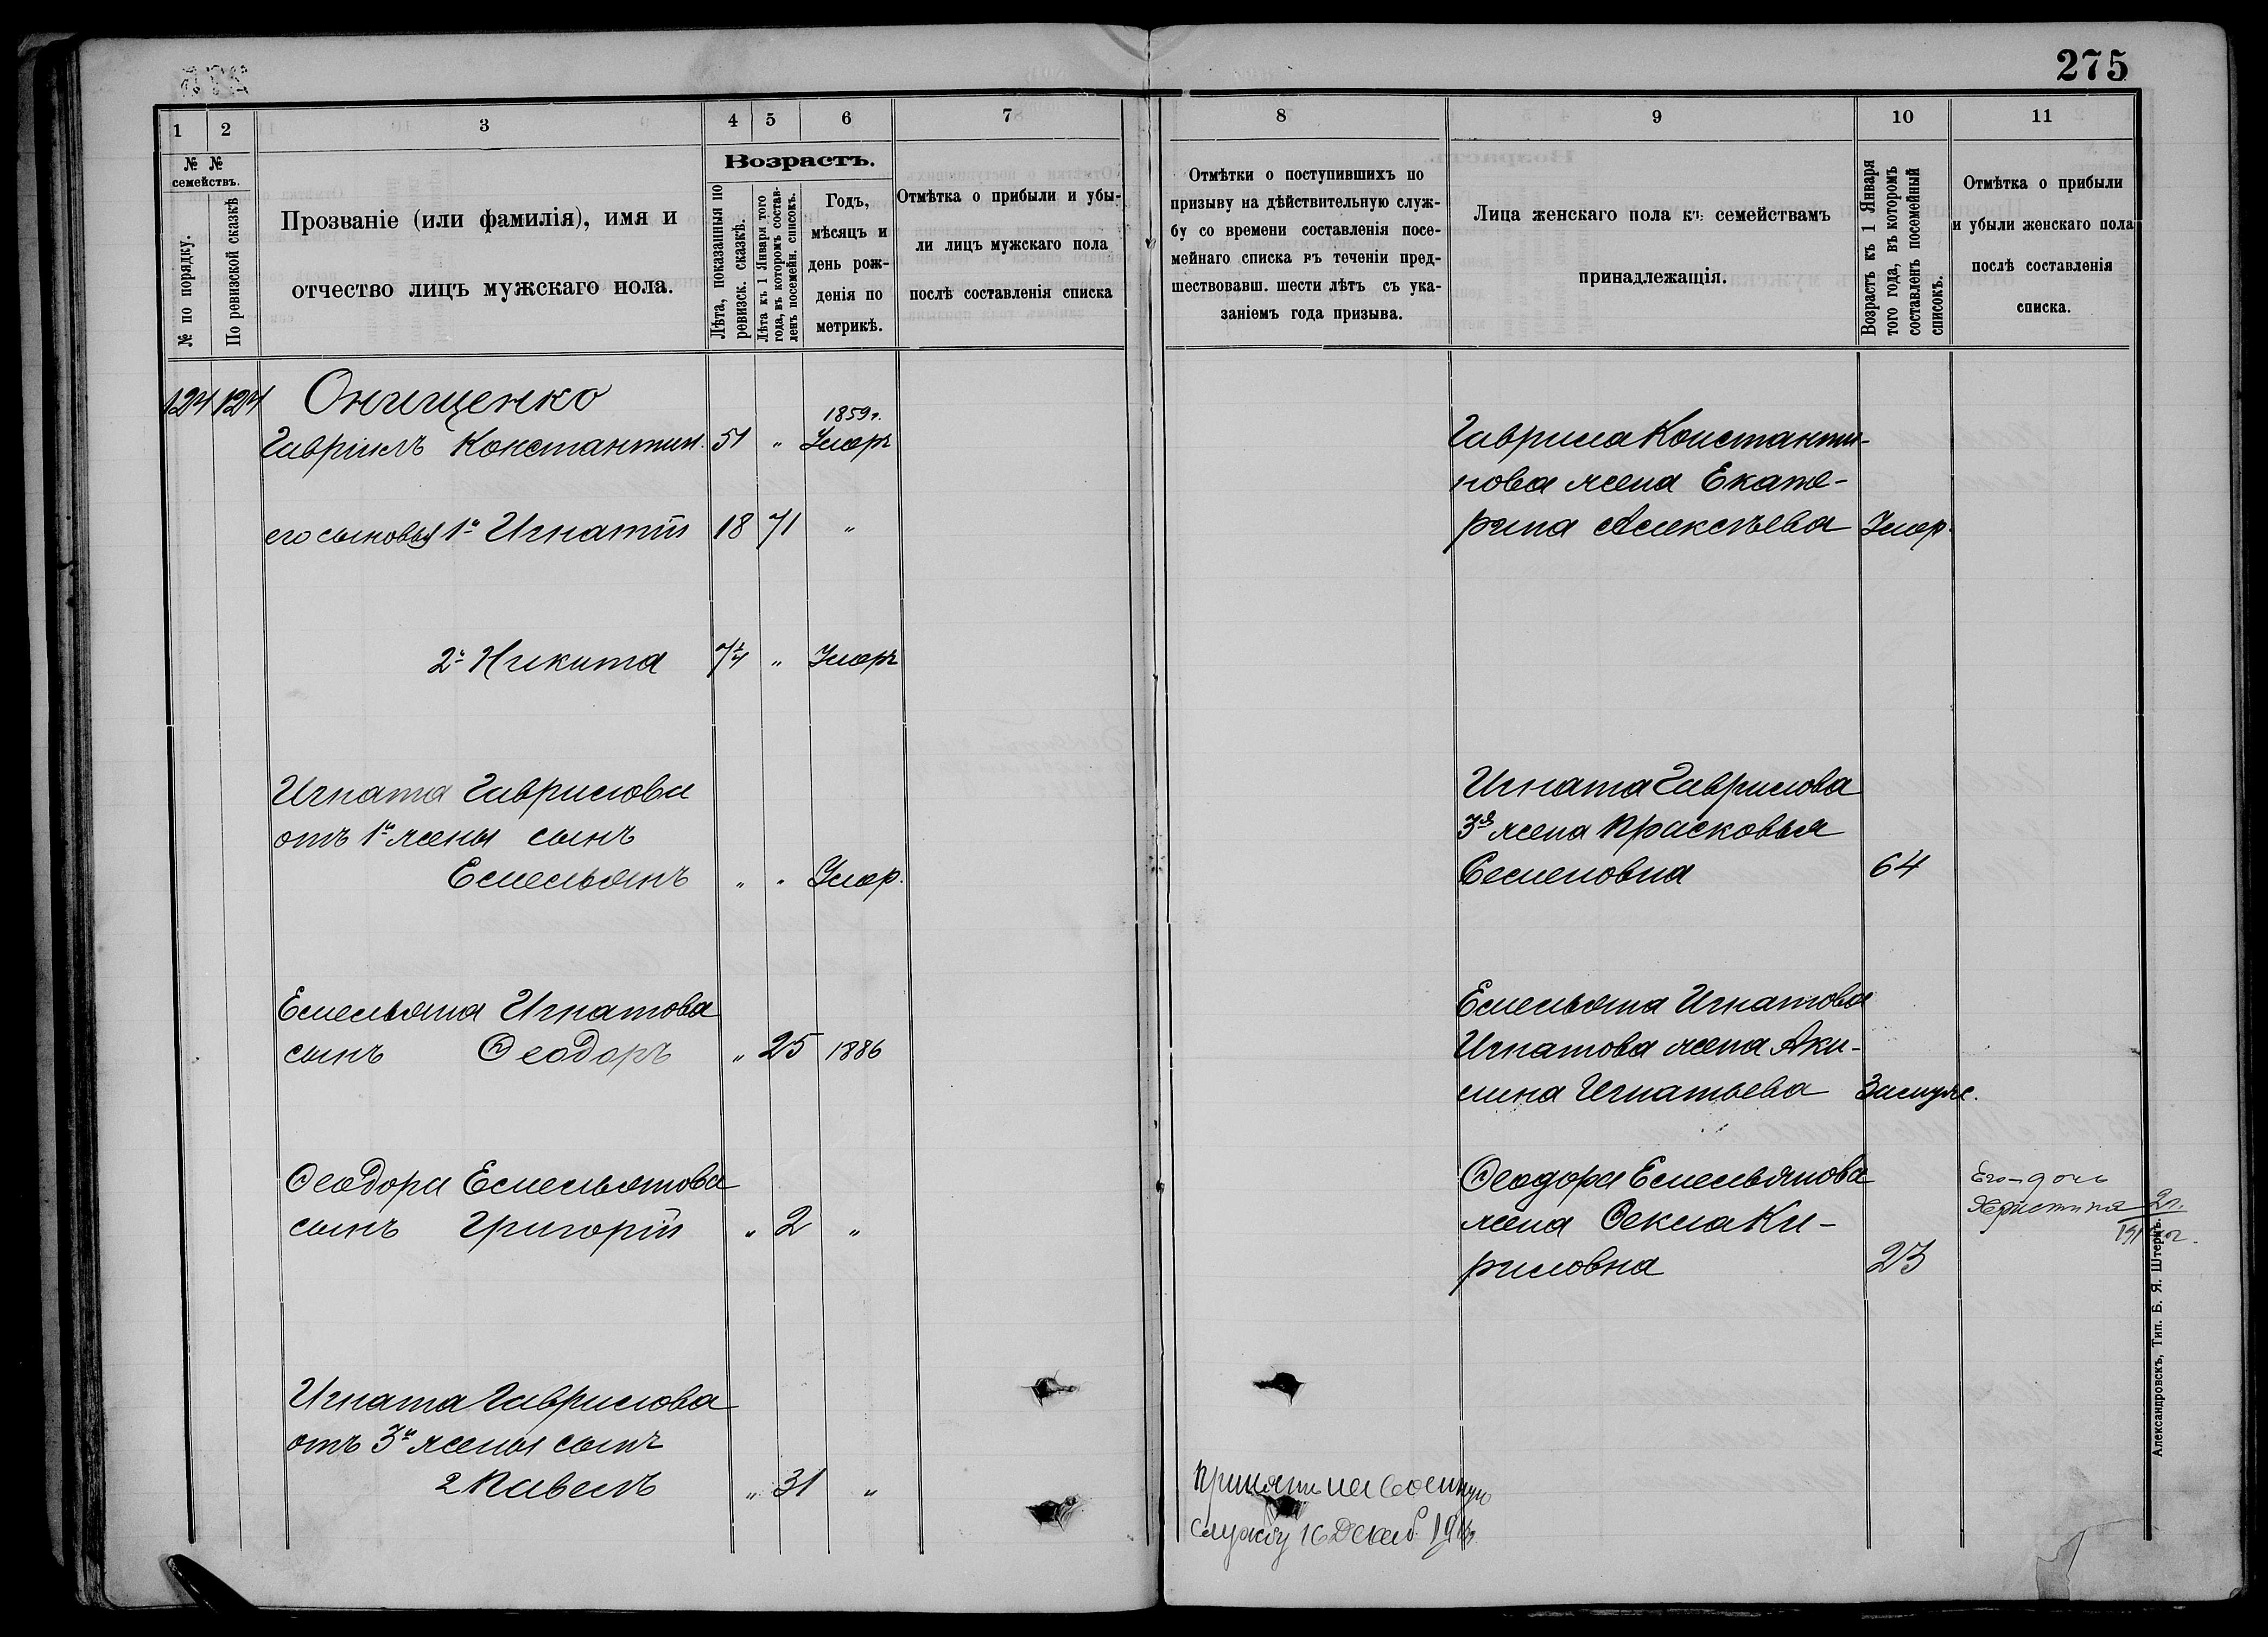 275
1
2
3
4
5
6
7
№ №
семействъ.
№ по порядку.
По ревизской сказкѣ
Прозваніе (или фамилія), имя и
отчество лицъ мужскаго пола.
Возрастъ.
Лѣта, показанныя по
ревизск. сказкѣ.
Лѣта къ 1 Января того
года, въ которомъ состав-
ленъ посемейн. списокъ.
Годъ,
мѣсяцъ и
день рож-
денія по
метрикѣ.
Отмѣтка о прибыли и убы-
ли лицъ мужскаго пола
послѣ составленія списка
124 124 Онищенко
1859 г.
Гавріилъ Константин. 51 " Умеръ
его сыновья 1й Игнатій 18 71 "
2й Никита "  Умеръ
Игната Гаврилова
отъ 1й жены сынъ
Емельянъ " " Умер.
Емельяна Игнатова
сынъ Ѳеодоръ " 25 1886
Ѳеодора Емельянова
сынъ Григорій " 2 "
Игната Гаврилова
отъ 3й жены сынъ
2 Павелъ " 31 "
8
9
10
11
Отмѣтки о поступившихъ по
призыву на дѣйствительную служ-
бу со времени составленія посе-
мейнаго списка въ теченіи пред-
шествовавш. шести лѣтъ съ ука-
заніемъ года призыва.
Лица женскаго пола къ семействамъ
принадлежащія.
Возрастъ къ 1 Января
того года, въ которомъ
составленъ посемейный
списокъ.
Отмѣтка о прибыли
и убыли женскаго пола
послѣ составленія
списка.
Гаврила Константи-
нова жена Екате-
рина Алексѣева Умер.
Игната Гаврилова
3я жена Прасковья
Семеновна 64
Емельяна Игнатова
Игнатова жена Аку-
лина Игнатьева Замуж.
Ѳеодора Емельянова
жена Ѳекла Ки-
риловна 23
Его дочь
Христина 2 л.
Принятъ на военную
службу 16 Декаб.
Александровскъ, Тип. Б. Я. Штернъ.